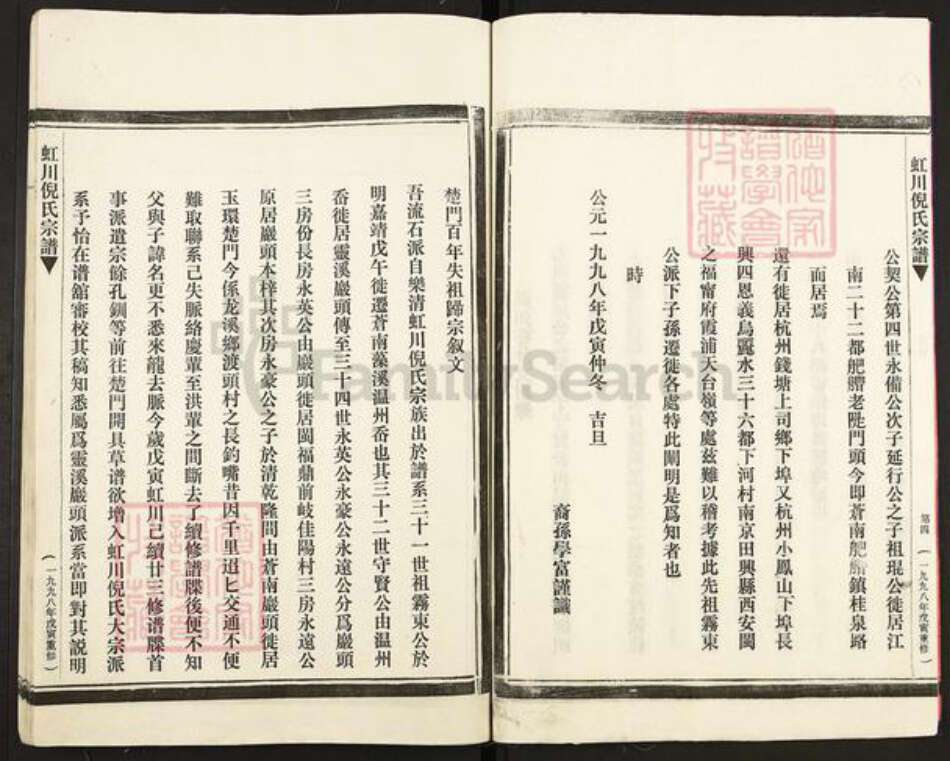 虹川倪氏宗譜
第四
(一九九八年戊寅重修)
公契公第四世永備公次子延行公之子祖琨公徙居江
南二十二都舥艚老陡門頭今即蒼南舥艚鎮桂泉路
而居焉
還有徙居杭州錢塘上司鄉下埠又杭州小鳳山下埠長
興四恩義烏麗水三十六都下河村南京田興縣西安閩
之福甯府霞浦天台嶺等處茲難以稽考據此先祖霧東
公派下子孫遷徙各處特此闡明是爲知者也
時
公元一九九八年戊寅仲冬 吉旦
裔孫學富謹識
楚門百年失祖歸宗叙文
吾流石派自樂清虹川倪氏宗族出於譜系三十一世祖霧東公於
明嘉靖戊午徙遷蒼南藻溪温州岙也其三十二世守賢公由温州
岙徙居靈溪巖頭傳至三十四世永英公永豪公永遠公分爲巖頭
三房份長房永英公由巖頭徙居閩福鼎前岐佳陽村三房永遠公
原居巖頭本梓其次房永豪公之子於清乾隆間由蒼南巖頭徙居
玉環楚門今係龙溪鄉渡頭村之長釣嘴昔因千里迢匕交通不便
難取聯系已失脈絡慶輩至洪輩之間斷去了續修譜牒後便不知
父與子諱名更不悉來龍去脈今歲戊寅虹川已續廿三修谱牒首
事派遣宗餘孔釧等前往楚門開具草谱欲增入虹川倪氏大宗派
系予怡在谱舘審校其稿知悉屬爲靈溪巖頭派系當即對其説明
虹川倪氏宗譜
(一九九八年戊寅重修)
FamilySearch